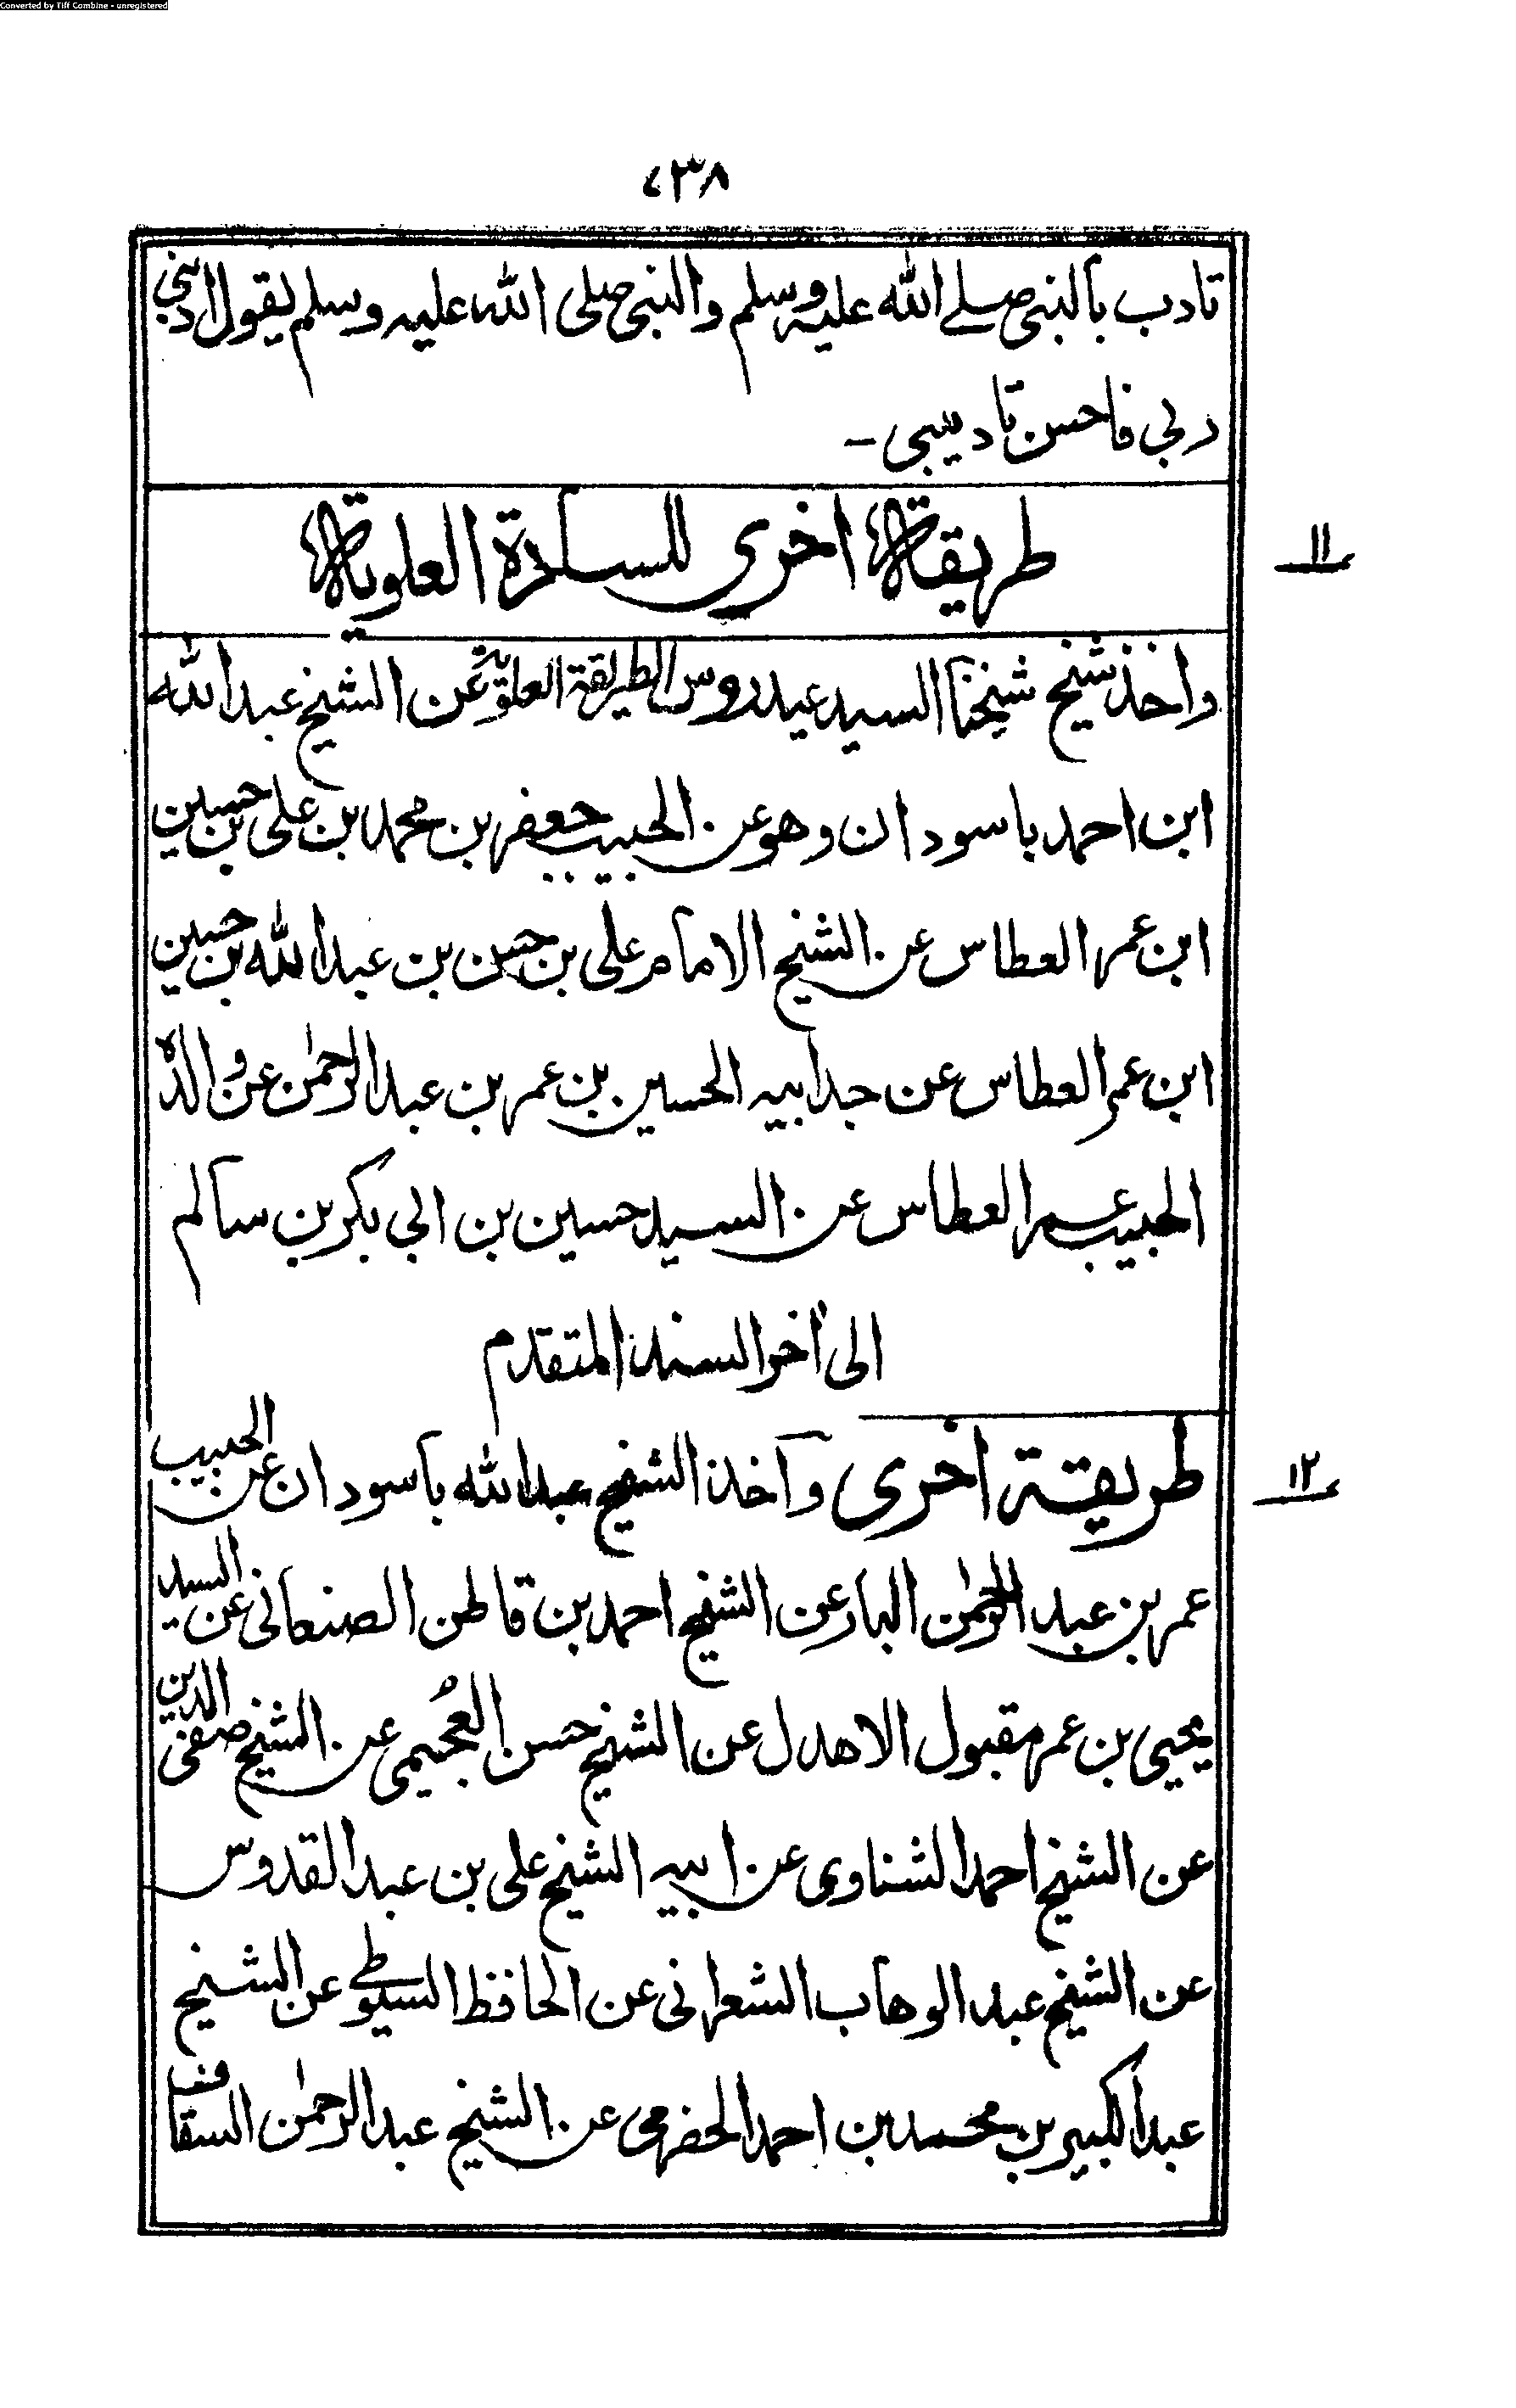 Converted by Tiff Combine - unregistered
٢٣٨
تادب بالنبی صلے الله علیه وسلم والنبی صلی الله علیه وسلم یقول ادبنی
ربی فاحسن تادیبی -
١١
طریقة اخری للسادة العلویة
واخذ شیخ شیخنا السید عیدروس الطریقة العلویة عن الشیخ عبد الله
ابن احمد باسودان وهو عن الحبیب جعفر بن محمد بن علی بن حسین
ابن عمر العطاس عن الشیخ الامام علی بن حسن بن عبد الله بن حسین
ابن عمر العطاس عن جد ابیه الحسین بن عمر بن عبد الرحمٰن عن والده
الحبیب عمر العطاس عن السید حسین بن ابی بکر بن سالم
الی اٰخر السند المتقدم
١٢
طریقة اخری واخذ الشیخ عبد الله باسودان عن الحبیب
عمر بن عبد الرحمٰن البار عن الشیخ احمد بن قاطن الصنعانی عن السید
یحیی بن عمر مقبول الاهدل عن الشیخ حسن العُجیمی عن الشیخ صفی الدین
عن الشیخ احمد الشناوی عن ابیه الشیخ علی بن عبد القدوس
عن الشیخ عبد الوهاب الشعرانی عن الحافظ السیوطے عن الشیخ
عبد الکبیر بن محمد بن احمد الحضرمی عن الشیخ عبد الرحمٰن السقاف